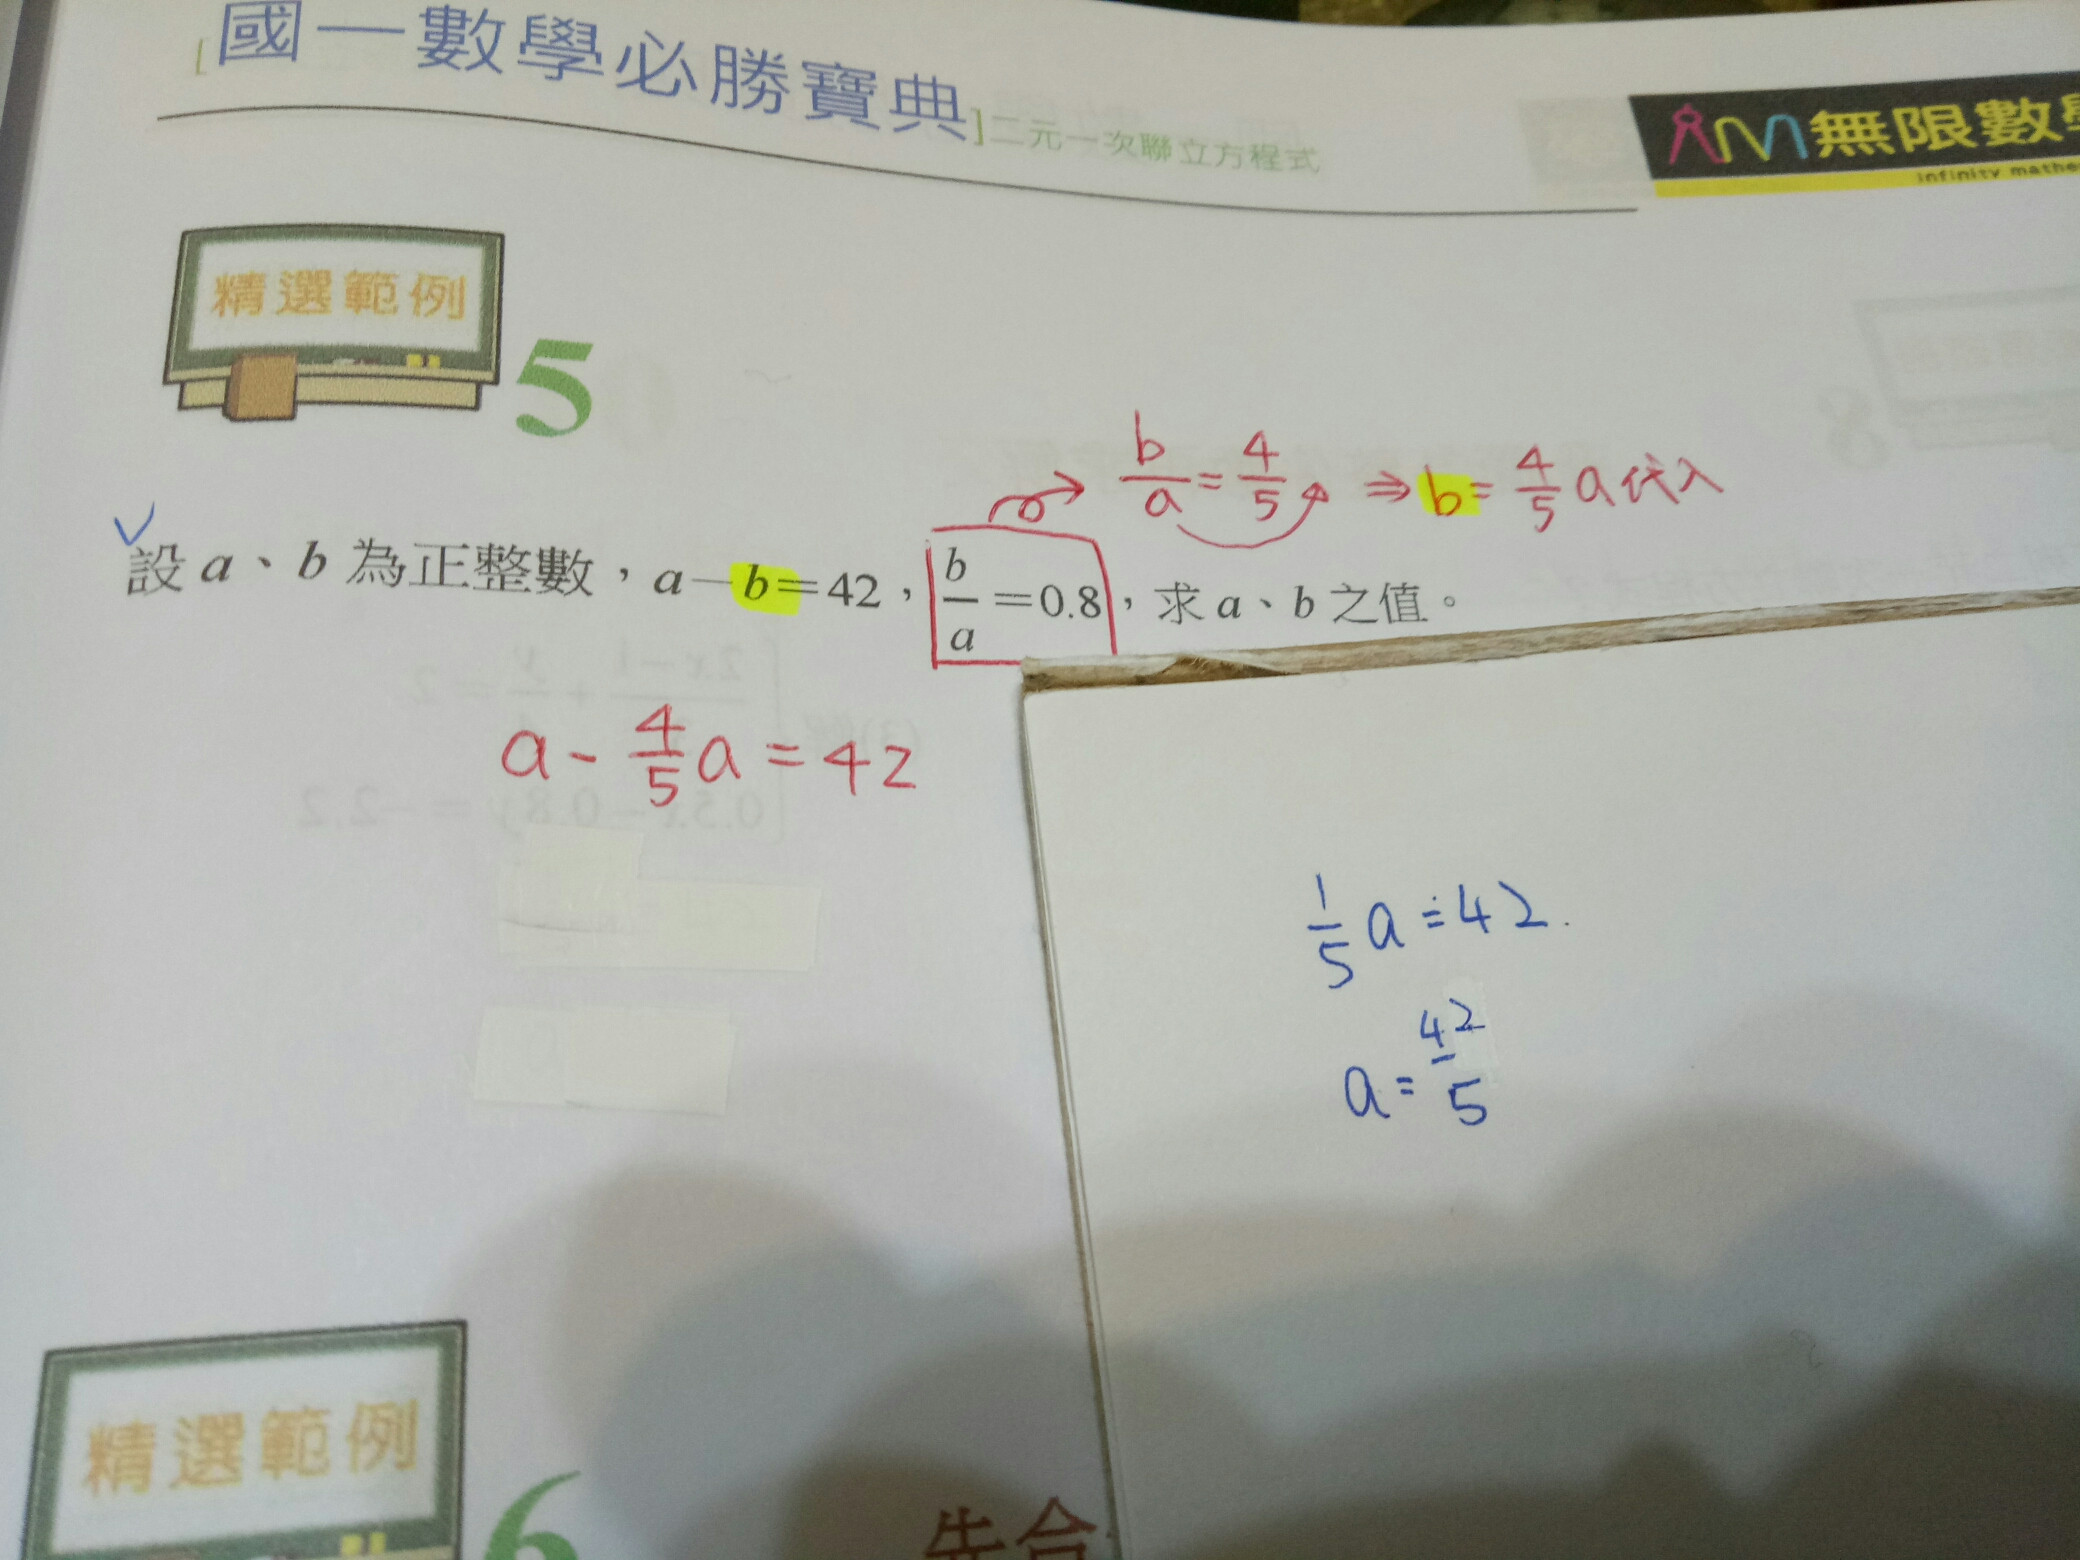 [國一數學必勝寶典]二元一次聯立方程式
無限數學
infinity mathe
精選範例 5
b/a = 4/5 ⇒ b = 4/5 a 代入
設 a、b 為正整數，a－b＝42，b/a＝0.8，求 a、b 之值。
a - 4/5 a = 42
1/5 a = 42.
a = 42/5
精選範例 6
先合